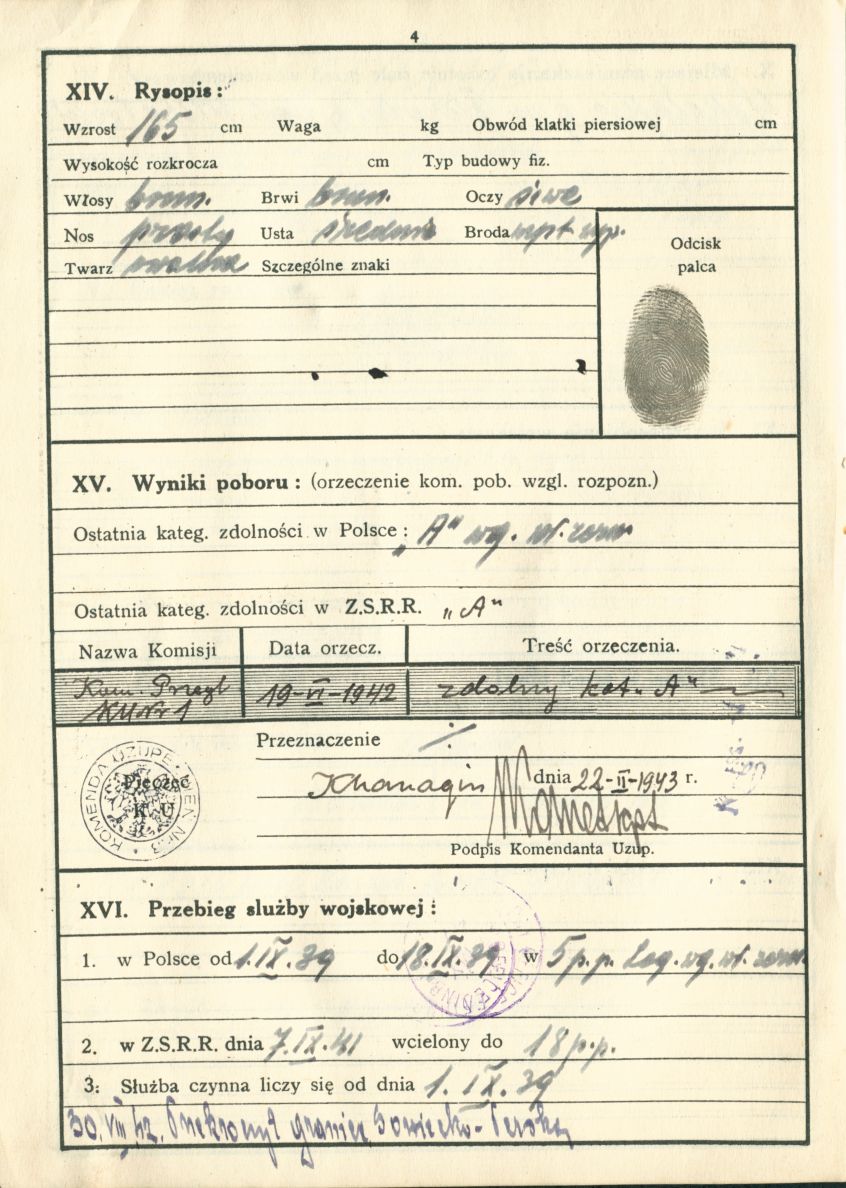 4
XIV. Rysopis:
Wzrost 165 cm Waga kg Obwód klatki piersiowej cm
Wysokość rozkrocza cm Typ budowy fiz.
Włosy brun. Brwi brun. Oczy siwe
Nos prosty Usta średnie Broda
Twarz owalna Szczególne znaki
Odcisk
palca
XV. Wyniki poboru: (orzeczenie kom. pob. wzgl. rozpozn.)
Ostatnia kateg. zdolności w Polsce: „A" wg. wł. zezn
Ostatnia kateg. zdolności w Z.S.R.R. „A"
Nazwa Komisji Data orzecz. Treść orzeczenia.
Kom. Przegl 19-VI-1942 zdolny kat. „A"
KU Nr 1
Przeznaczenie ·/·
KOMENDA UZUPEŁNIEŃ Nr.3
Pieczęć
K. U.
Khanaqin dnia 22-II-1943 r.
Podpis Komendanta Uzup.
XVI. Przebieg służby wojskowej:
1. w Polsce od 1.IX.39 do 18.IX.39 w 5 p.p. Leg. wg. wł. zezn.
2. w Z.S.R.R. dnia 7.IX.41 wcielony do 18 p.p.
3: Służba czynna liczy się od dnia 1. IX. 39
30.VIII 42. Przekroczył granicę Sowiecko-Perską